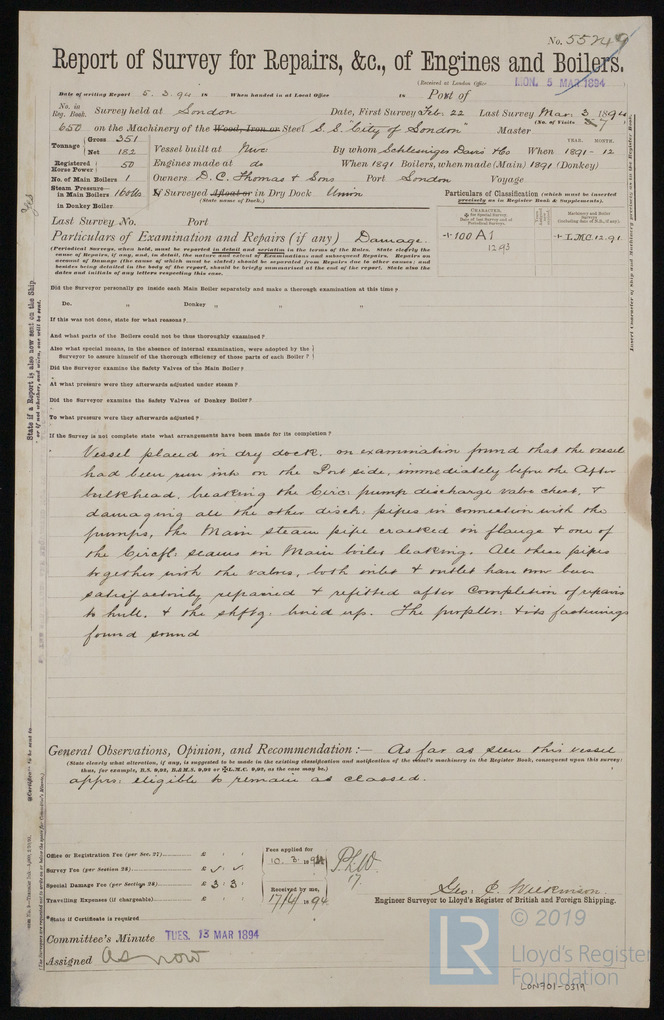 No. 55249
Report of Survey for Repairs, &c., of Engines and Boilers.
(Received at London Office MON. 5 MAR 1894
Date of writing Report 5.3.94 18 When handed in at Local Office 18 Port of
No. in Reg. Book. Survey held at London Date, First Survey Feb. 22 Last Survey Mar. 3, 1894
(No. of Visits 7
650 on the Machinery of the Wood, Iron or Steel S.S. "City of London" Master
Tonnage Gross 351
Net 182 Vessel built at Nwc By whom Schlesinger Davis & Co When 1891 - 12
YEAR. MONTH.
Registered Horse Power 50 Engines made at do When 1891 Boilers, when made (Main) 1891 (Donkey)
No. of Main Boilers 1 Owners D. C. Thomas & Sons Port London Voyage
Steam Pressure in Main Boilers 160 lbs If Surveyed Afloat or in Dry Dock Union
(State name of Dock.)
in Donkey Boiler
Particulars of Classification (which must be inserted precisely as in Register Book & Supplements).
Last Survey No. Port
CHARACTER.
Machinery and Boiler Surveys
+100 A1
12.93
+ L.M.C. 12.91
Particulars of Examination and Repairs (if any) Damage.
(Periodical Surveys, when held, must be reported in detail and seriatim in the terms of the Rules. State clearly the
cause of Repairs, if any, and, in detail, the nature and extent of Examinations and subsequent Repairs. Repairs on
account of Damage (the cause of which must be stated) should be separated from Repairs due to other causes; and
besides being detailed in the body of the report, should be briefly summarised at the end of the report. State also the
dates and initials of any letters respecting this case.
Did the Surveyor personally go inside each Main Boiler separately and make a thorough examination at this time?
Do. " Donkey " " "
If this was not done, state for what reasons?
And what parts of the Boilers could not be thus thoroughly examined?
Also what special means, in the absence of internal examination, were adopted by the
Surveyor to assure himself of the thorough efficiency of those parts of each Boiler?
Did the Surveyor examine the Safety Valves of the Main Boiler?
At what pressure were they afterwards adjusted under steam?
Did the Surveyor examine the Safety Valves of Donkey Boiler?
To what pressure were they afterwards adjusted?
If the Survey is not complete state what arrangements have been made for its completion?
Vessel placed in dry dock, on examination found that the vessel
had been run into on the Port side, immediately before the After
bulkhead, breaking the Circ: pump discharge valve chest, &
damaging all the other disch: pipes in connection with the
pumps, the Main steam pipe cracked in flange & one of
the Circft: seams in Main boiler leaking. All these pipes
together with the valves, both inlet & outlet have now been
satisfactorily repaired & refitted after Completion of repairs
to hull, & the shftg: lined up. The propller: & its fastenings
found sound
General Observations, Opinion, and Recommendation:— As far as seen this vessel
(State clearly what alteration, if any, is suggested to be made in the existing classification and notification of the vessel's machinery in the Register Book, consequent upon this survey:
thus, for example, B.S. 9,92, B.&M.S. 9,92 or L.M.C. 9,92, as the case may be.)
apprs: eligible to remain as classed.
Office or Registration Fee (per Sec. 27) £
Survey Fee (per Section 28) £
Special Damage Fee (per Section 28) £ 3 : 3 :
Travelling Expenses (if chargeable) £
Fees applied for 10.3.1894
Received by me, 17/4/1894
*State if Certificate is required
Geo: C. Wilkinson.
Engineer Surveyor to Lloyd's Register of British and Foreign Shipping.
Committee's Minute TUES. 13 MAR 1894
Assigned as now
State if a Report is also now sent on the Ship
or if not whether, and when, one will be sent.
Yes
Insert Character of Ship and Machinery precisely as in the Register Book.
LR
© 2019
Lloyd's Register
Foundation
LON701-0319